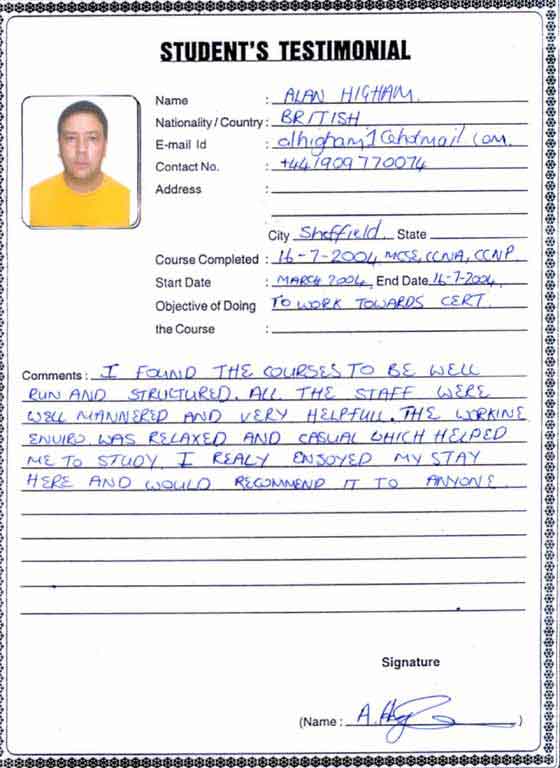 STUDENT'S TESTIMONIAL
Name : ALAN HIGHAM.
Nationality / Country : BRITISH.
E-mail Id : alhigham1@hotmail.com.
Contact No. : +44 1909 770074
Address :
City Sheffield. State
Course Completed : 16-7-2004 MCSE, CCNA, CCNP
Start Date : MARCH 2004, End Date 16-7-2004
Objective of Doing : TO WORK TOWARDS CERT.
the Course :
Comments : I FOUND THE COURSES TO BE WELL
RUN AND STRUCTURED. ALL THE STAFF WERE
WELL MANNERED AND VERY HELPFULL. THE WORKINE
ENVIRO WAS RELAXED AND CASUAL WHICH HELPED
ME TO STUDY. I REALY ENJOYED MY STAY
HERE AND WOULD RECOMMEND IT TO ANYONE.
Signature
(Name : )